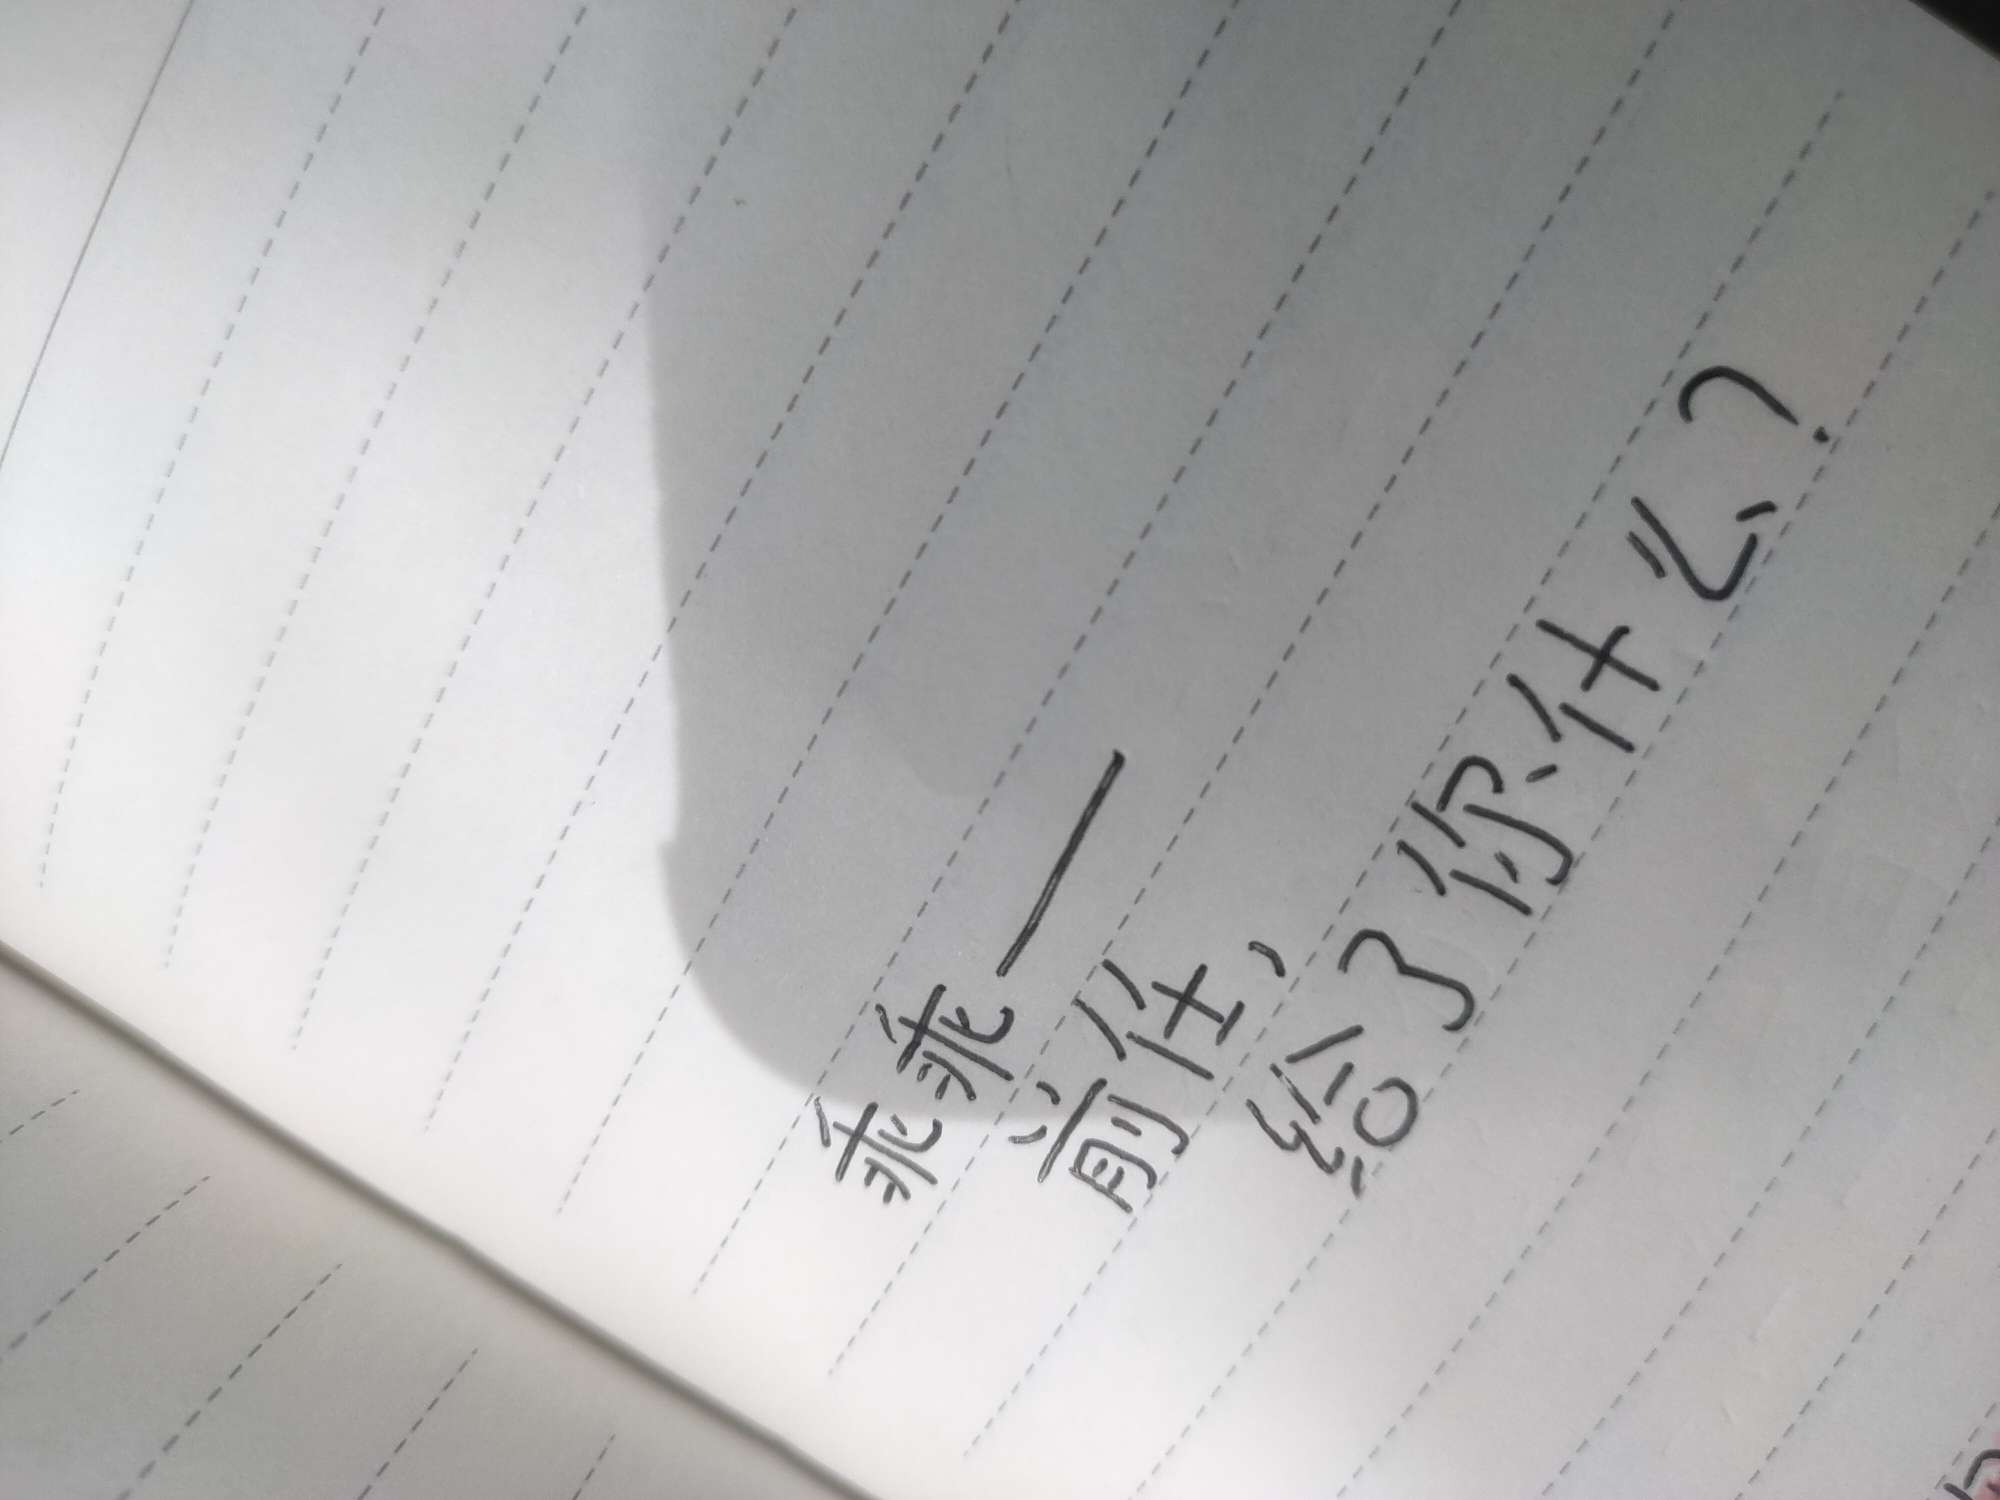 乖乖—
前任，
给了你什么？